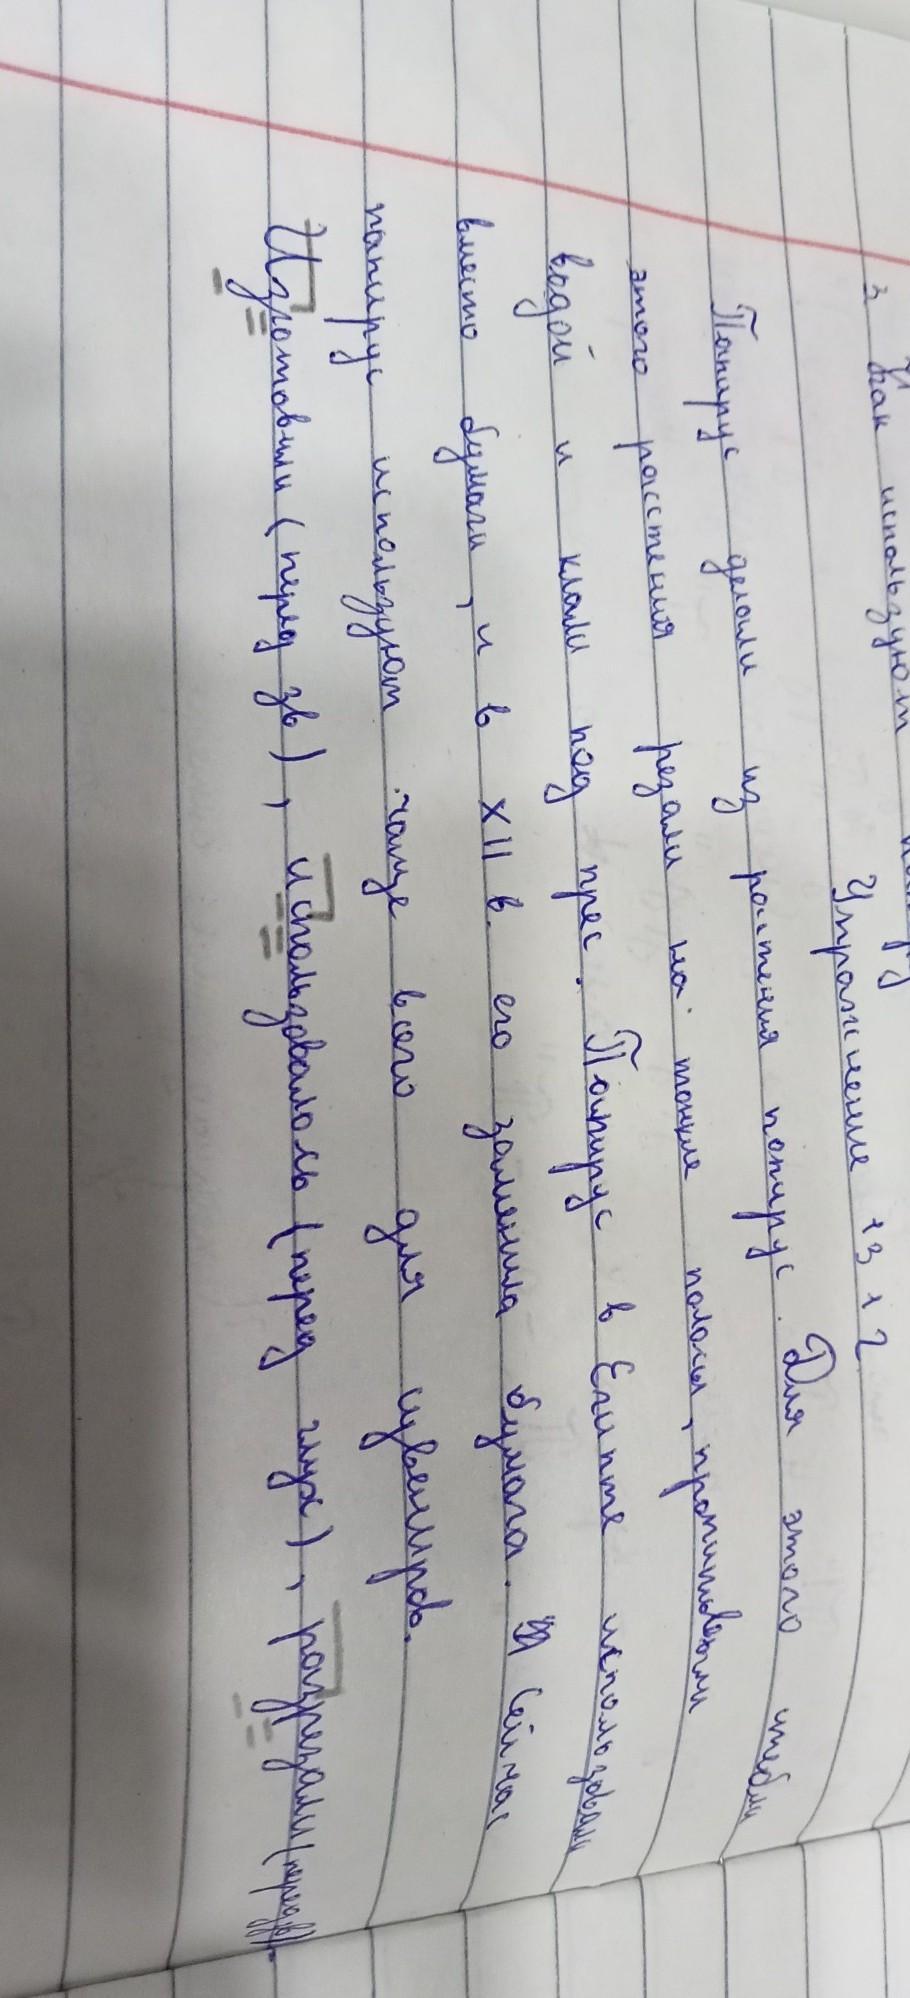 3 как используют
Упражнение 1312
Папирус делали из растения папирус. Для этого стебли
этого расстения резали на тонкие полосы, пропитывали
водой и клали под прес. Папирус в Египте использовали
вместо бумаги, и в XII в. его заменила бумага. Сейчас
папирус используют чаще всего для сувениров.
Изготовили (перед зв), использовалось (перед глух), разрезали (перед зв).